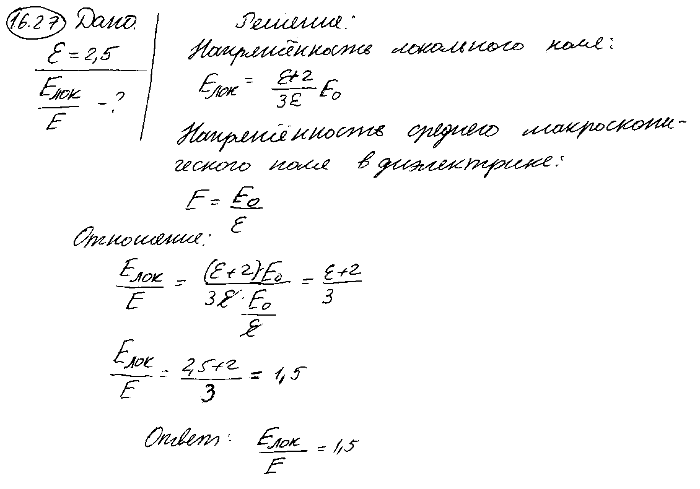 16.27 Дано.
ε = 2,5
Eлок/E - ?
Решение:
Напряжённость локального поля:
Eлок = (ε+2)/(3ε) E₀
Напряжённость среднего макроскопи-
ческого поля в диэлектрике:
E = E₀/ε
Отношение:
Eлок/E = (ε+2)E₀/(3ε · E₀/ε) = (ε+2)/3
Eлок/E = (2,5+2)/3 = 1,5
Ответ: Eлок/E = 1,5